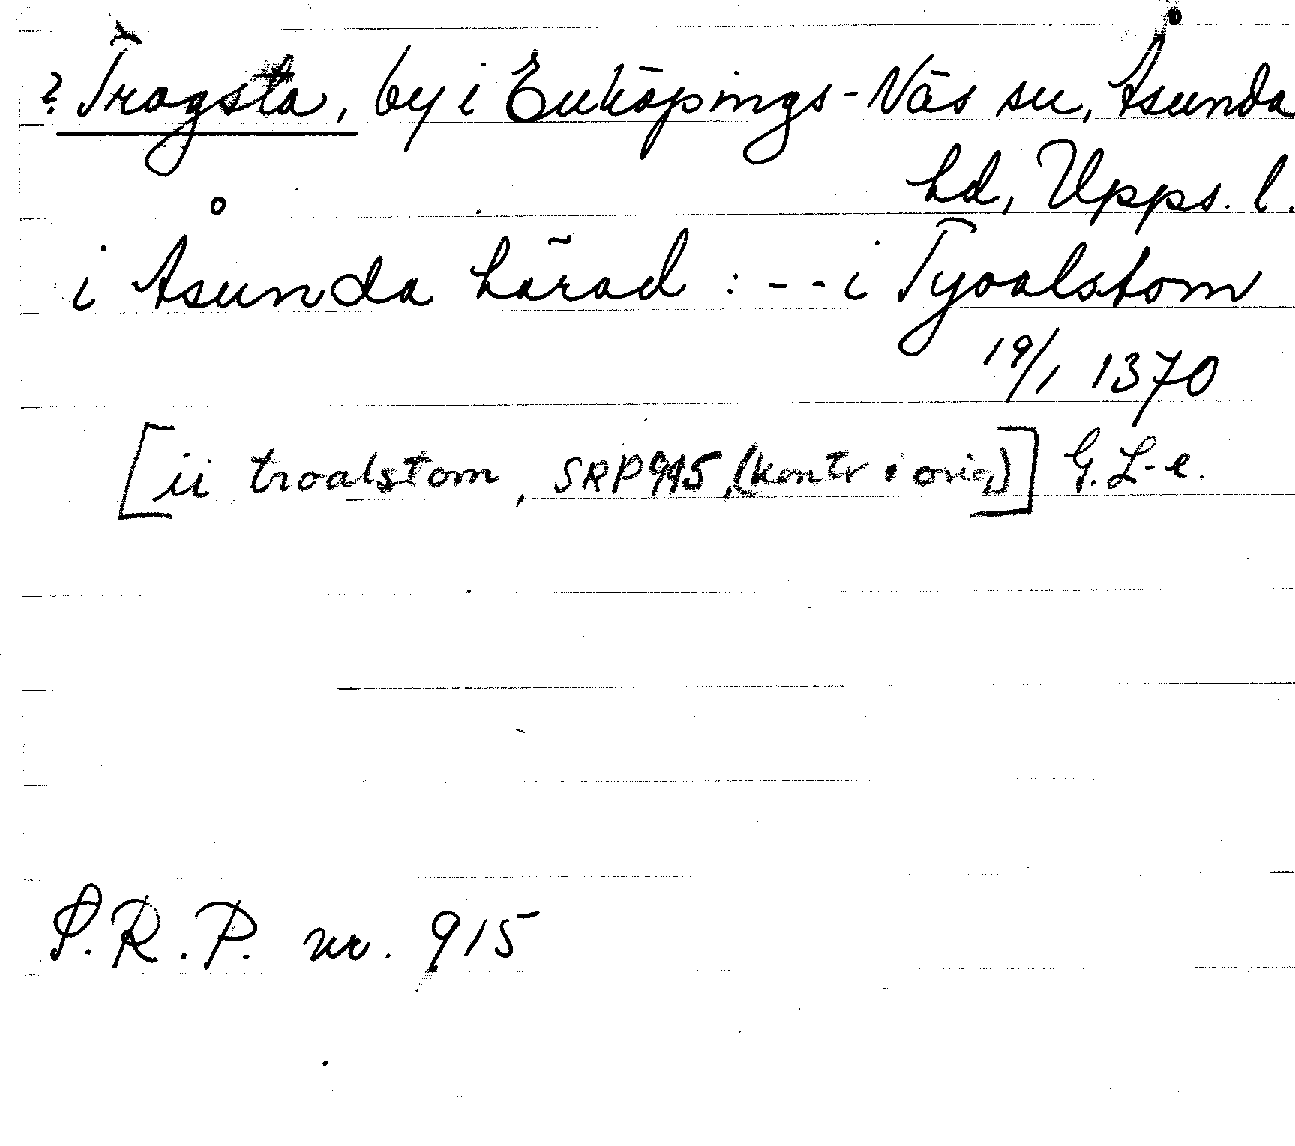 ? Tragsta, by i Enköpings-Näs sn, Åsunda
hd, Upps. l.
i Åsunda härad : -- i Tyoalstom
19/1 1370
[ii troalstom, SRP 915, (kontr i orig.)] G. L-e.
S.R.P. nr. 915